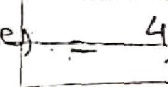 e) = 4